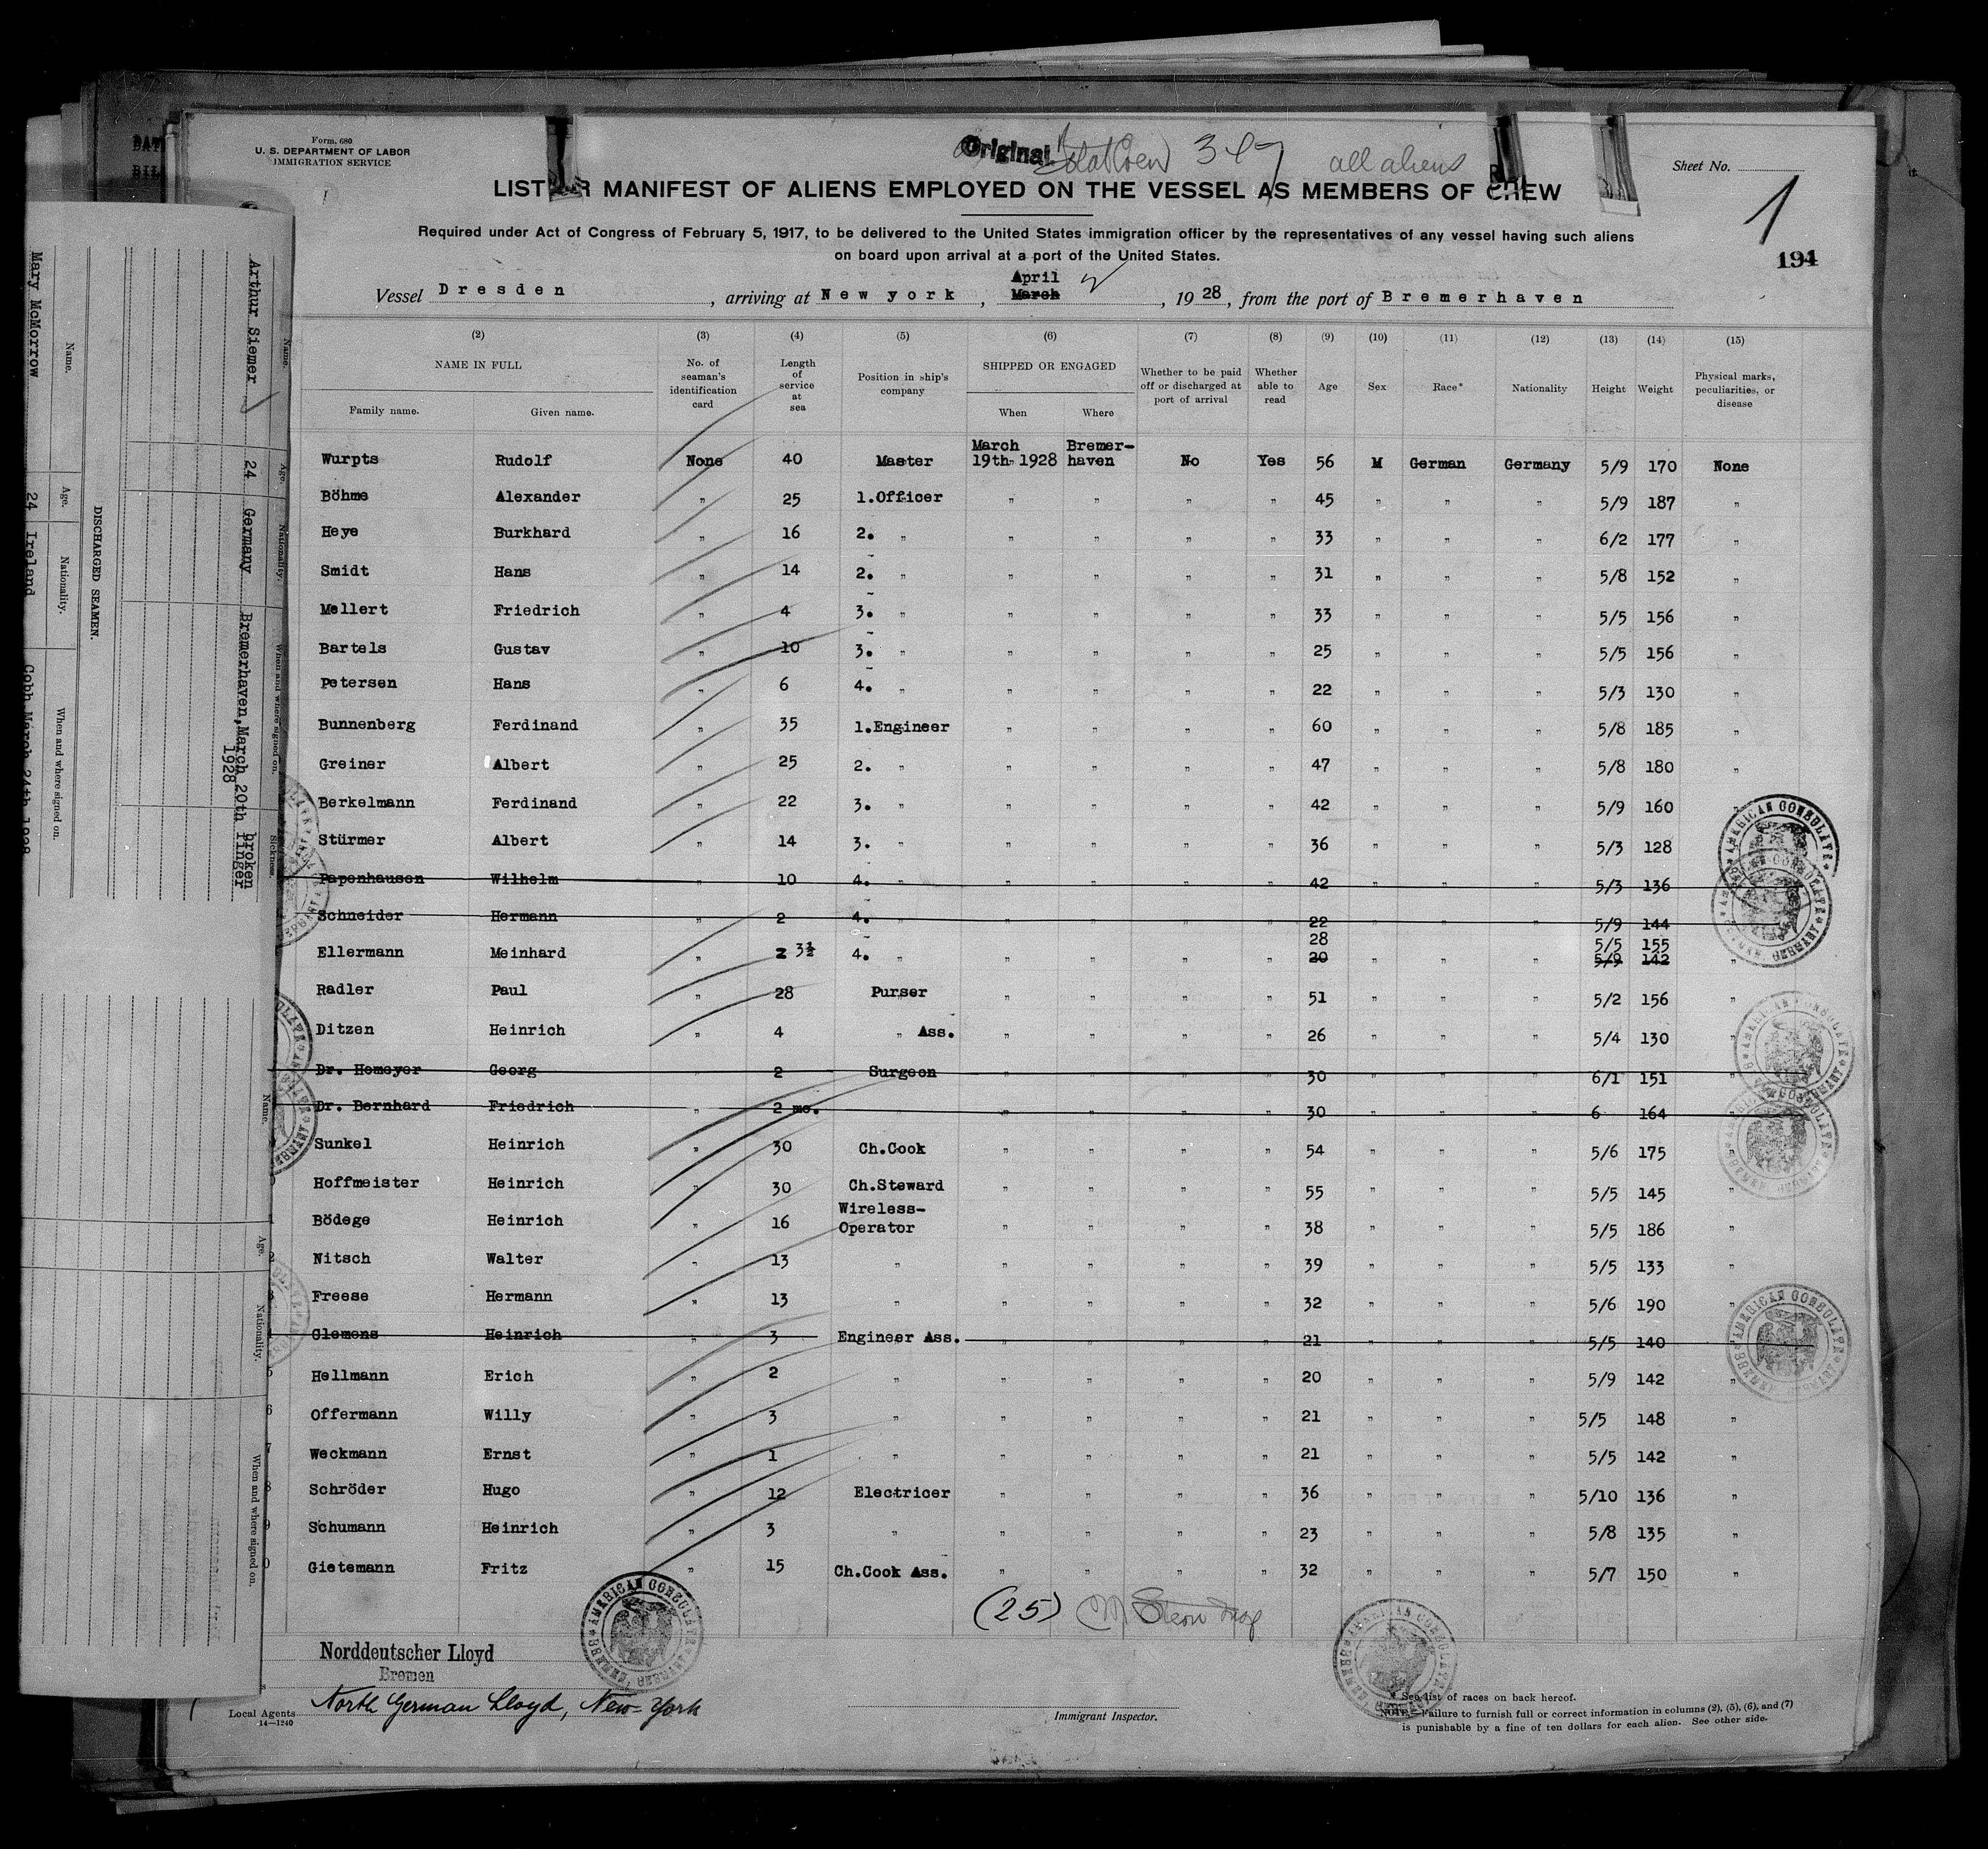 Form. 680
U. S. DEPARTMENT OF LABOR
IMMIGRATION SERVICE
Original
347 all aliens
Sheet No.
1
194
LIST OR MANIFEST OF ALIENS EMPLOYED ON THE VESSEL AS MEMBERS OF CREW
Required under Act of Congress of February 5, 1917, to be delivered to the United States immigration officer by the representatives of any vessel having such aliens
on board upon arrival at a port of the United States.
April
Vessel Dresden, arriving at New york, March, 1928, from the port of Bremerhaven
(2) (3) (4) (5) (6) (7) (8) (9) (10) (11) (12) (13) (14) (15)
NAME IN FULL No. of seaman's identification card Length of service at sea Position in ship's company SHIPPED OR ENGAGED Whether to be paid off or discharged at port of arrival Whether able to read Age Sex Race* Nationality Height Weight Physical marks, peculiarities, or disease
Family name. Given name. When Where
Wurpts Rudolf None 40 Master March 19th 1928 Bremer-haven No Yes 56 M German Germany 5/9 170 None
Böhme Alexander " 25 1.Officer " " " " 45 " " " 5/9 187 "
Heye Burkhard " 16 2. " " " " " 33 " " " 6/2 177 "
Smidt Hans " 14 2. " " " " " 31 " " " 5/8 152 "
Mellert Friedrich " 4 3. " " " " " 33 " " " 5/5 156 "
Bartels Gustav " 10 3. " " " " " 25 " " " 5/5 156 "
Petersen Hans " 6 4. " " " " " 22 " " " 5/3 130 "
Bunnenberg Ferdinand " 35 1.Engineer " " " " 60 " " " 5/8 185 "
Greiner Albert " 25 2. " " " " " 47 " " " 5/8 180 "
Berkelmann Ferdinand " 22 3. " " " " " 42 " " " 5/9 160 "
Stürmer Albert " 14 3. " " " " " 36 " " " 5/3 128
Papenhausen Wilhelm " 10 4. " " " " " 42 " " " 5/3 136
Schneider Hermann " 2 4. " " " " " 22 " " " 5/9 144
28 5/5 155
Ellermann Meinhard " 2 3½ 4. " " " " " 20 " " " 5/9 142 "
Radler Paul " 28 Purser " " " " 51 " " " 5/2 156 "
Ditzen Heinrich " 4 " Ass. " " " " 26 " " " 5/4 130 "
Dr. Homeyer Georg " 2 Surgeon " " " " 30 " " " 6/1 151
Dr. Bernhard Friedrich " 2 mo. " " " " " 30 " " " 6 164
Sunkel Heinrich " 30 Ch.Cook " " " " 54 " " " 5/6 175 "
Hoffmeister Heinrich " 30 Ch.Steward " " " " 55 " " " 5/5 145 "
Bödege Heinrich " 16 Wireless-Operator " " " " 38 " " " 5/5 186 "
Nitsch Walter " 13 " " " " " 39 " " " 5/5 133 "
Freese Hermann " 13 " " " " " 32 " " " 5/6 190 "
Clemens Heinrich " 3 Engineer Ass. " " " " 21 " " " 5/5 140 "
Hellmann Erich " 2 " " " " " 20 " " " 5/9 142 "
Offermann Willy " 3 " " " " " 21 " " " 5/5 148 "
Weckmann Ernst " 1 " " " " " 21 " " " 5/5 142 "
Schröder Hugo " 12 Electricer " " " " 36 " " " 5/10 136 "
Schumann Heinrich " 3 " " " " " 23 " " " 5/8 135 "
Gietemann Fritz " 15 Ch.Cook Ass. " " " " 32 " " " 5/7 150 "
(25)
Norddeutscher Lloyd
Bremen
Local Agents North German Lloyd, New-York
14—1240
Immigrant Inspector.
* See list of races on back hereof.
NOTE.—Failure to furnish full or correct information in columns (2), (5), (6), and (7)
is punishable by a fine of ten dollars for each alien. See other side.
AMERICAN CONSULATE
DISCHARGED SEAMEN.
Name. Age. Nationality. When and where signed on.
Mary McMorrow 24 Ireland Cobh, March 24th 1928
Name. Age. Nationality. When and where signed on. Sickness.
Arthur Siemer 24 Germany Bremerhaven, March 20th 1928 broken finger
Name. Age. Nationality. When and where signed on.